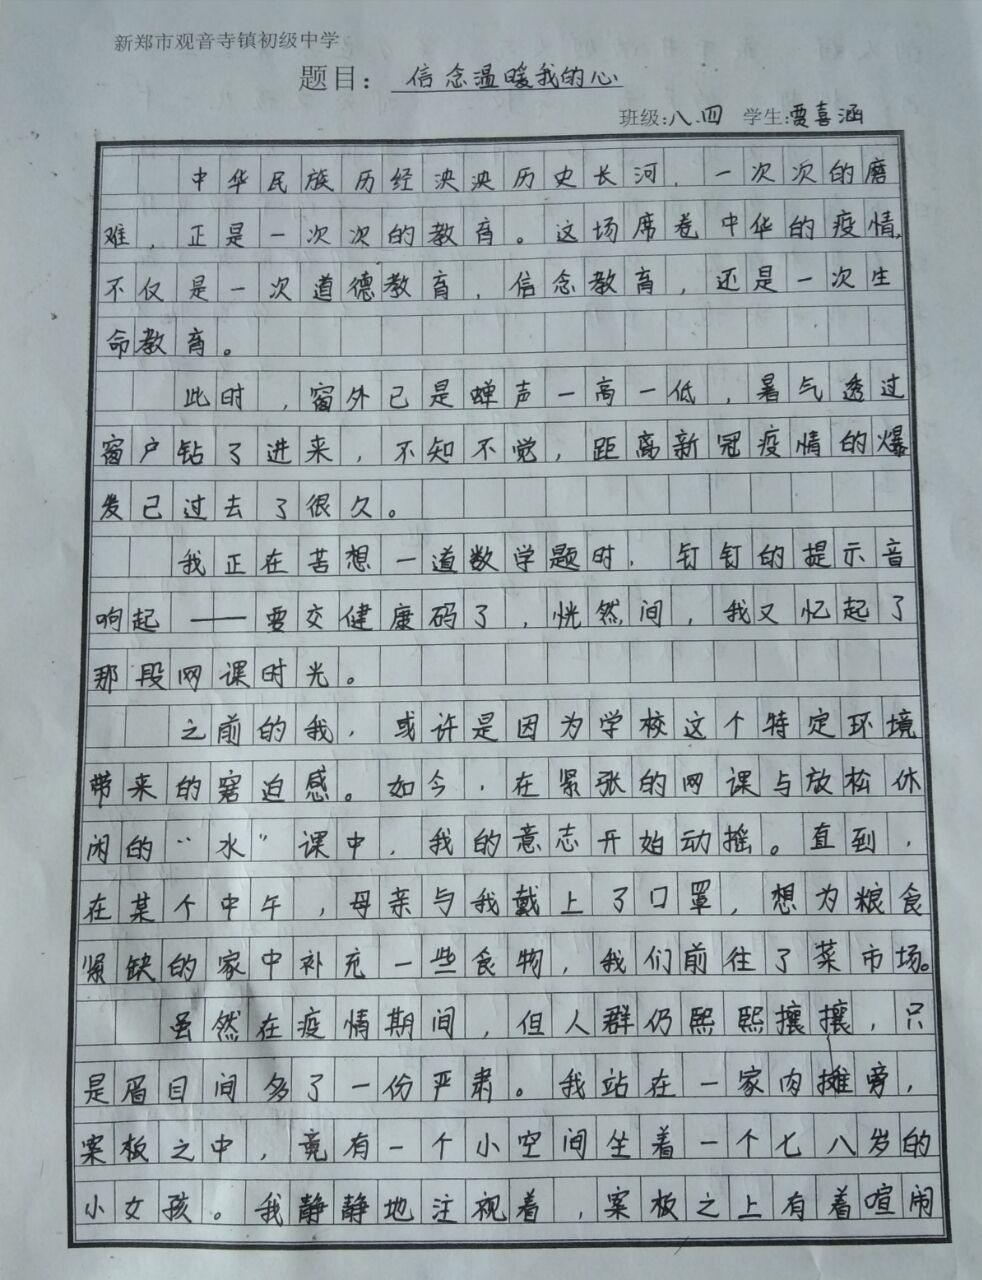 新郑市观音寺镇初级中学
题目：信念温暖我的心
班级:八.四 学生:贾喜涵
中华民族历经泱泱历史长河，一次次的磨
难，正是一次次的教育。这场席卷中华的疫情，
不仅是一次道德教育，信念教育，还是一次生
命教育。
此时，窗外已是蝉声一高一低，暑气透过
窗户钻了进来，不知不觉，距离新冠疫情的爆
发已过去了很久。
我正在苦想一道数学题时，钉钉的提示音
响起——要交健康码了，恍然间，我又忆起了
那段网课时光。
之前的我，或许是因为学校这个特定环境
带来的窘迫感。如今，在紧张的网课与放松休
闲的“水”课中，我的意志开始动摇。直到，
在某个中午，母亲与我戴上了口罩，想为粮食
紧缺的家中补充一些食物，我们前往了菜市场。
虽然在疫情期间，但人群仍熙熙攘攘，只
是眉目间多了一份严肃。我站在一家肉摊旁，
案板之中，竟有一个小空间坐着一个七八岁的
小女孩。我静静地注视着，案板之上有着喧闹